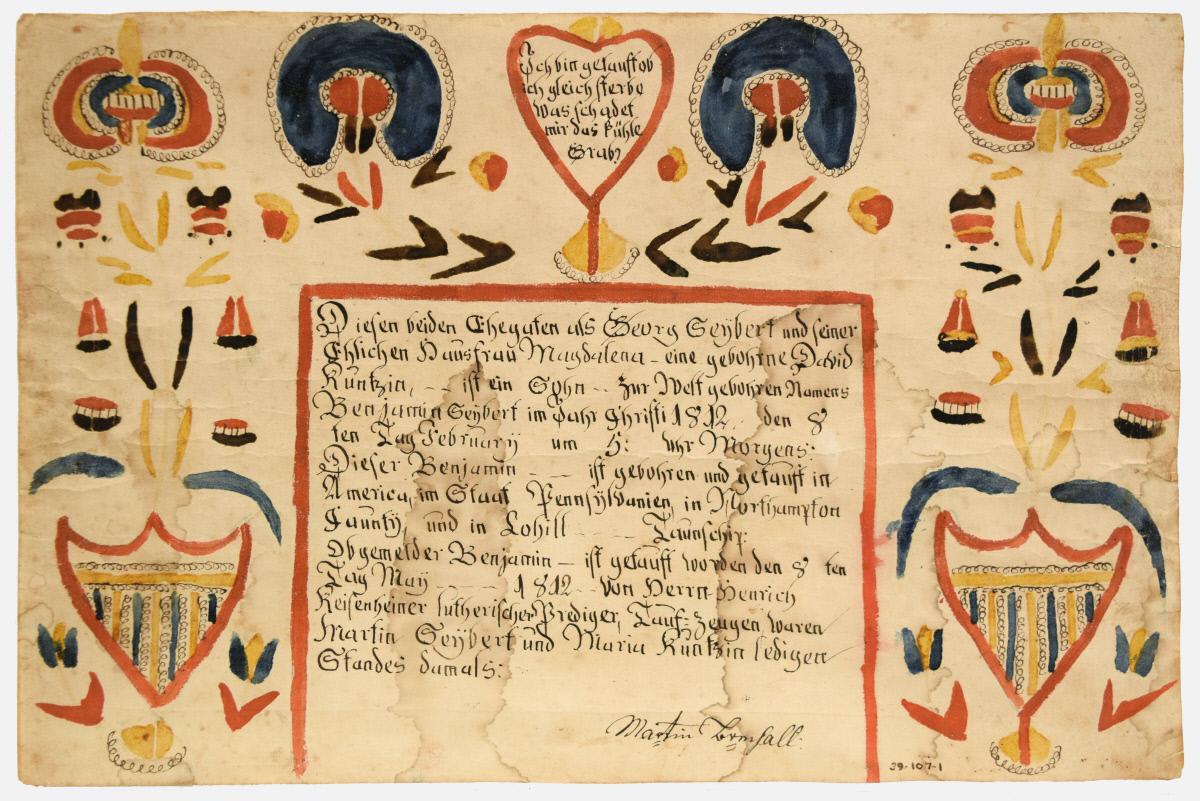 Ich bin getauft ob
ich gleich sterbe
was schadet
mir das kühle
Grab
Diesen beiden Ehegaten als Georg Seÿbert und seiner
Ehlichen Hausfrau Magdalena – eine gebohrne David
Kuntzin, – – ist ein Sohn – – zur Welt gebohren Namens
Benjamin Seÿbert im Jahr Christi 1812. den 8
ten Tag Februarÿ um 5: Uhr Morgens:
Dieser Benjamin – – ist gebohren und getauft in
America, im Staat Pennsÿlvanien, in Northampton
Caunty, und in Lohill – – – Taunschip:
Obgemelder Benjamin – ist getauft worden den 8 ten
Tag Maÿ – – 1812 – Von Herrn Henrich
Reisenheiner lutherischer Prediger, Tauf-zeugen waren
Martin Seÿbert und Maria Kuntzin ledigen
Standes damals:
Martin Brechall.
39-107-1